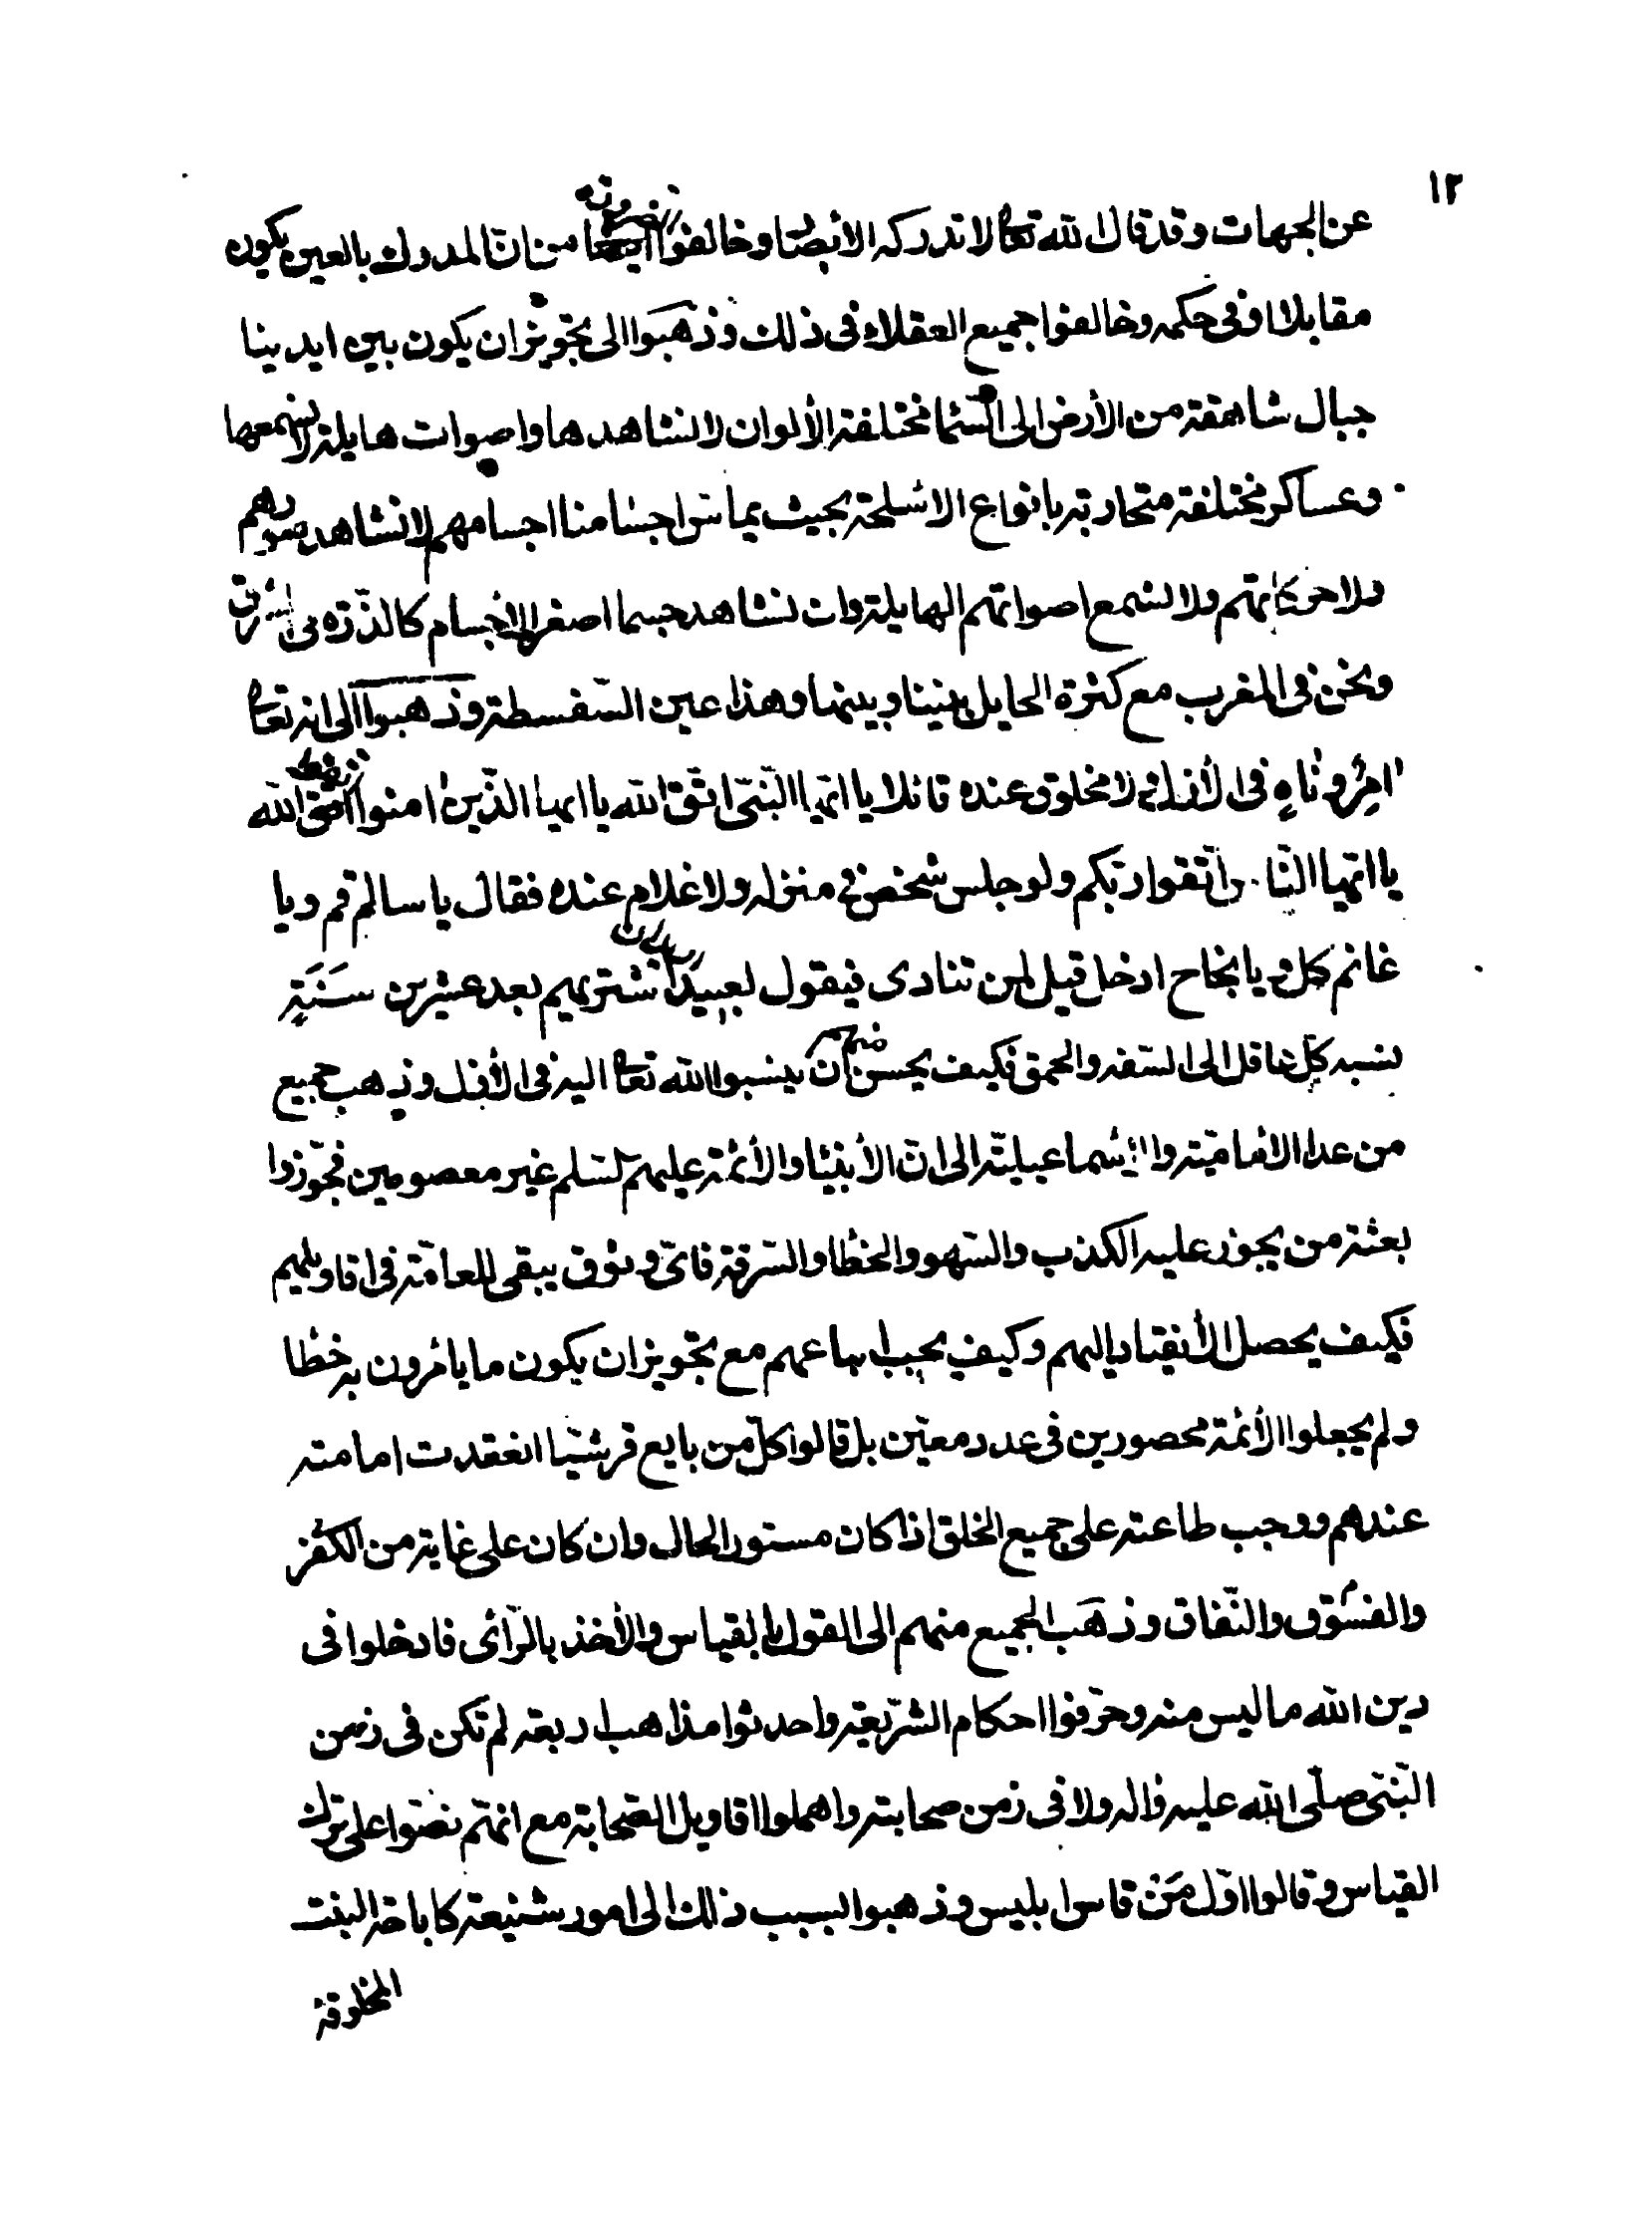 ١٢
عن الجهات وقد قال الله تعا لا تدركه الأبصار وخالفوا الضرورة من ان المدرك بالعين يكون
مقابلا او فى حكمه وخالفوا جميع العقلاء فى ذلك وذهبوا الى تجويز ان يكون بين ايدينا
جبال شاهقة من الأرض الى السّما مختلفة الألوان لا نشاهدها واصوات هايلة لا نسمعها
وعساكر مختلفة متحاربة بانواع الاسلحة بحيث يماس اجسامنا اجسامهم لا نشاهد صورهم
ولا حركاتهم ولا نسمع اصواتهم الهايلة وان نشاهد جسما اصغر الاجسام كالذّرّة فى المشرق
ونحن فى المغرب مع كثرة الحايل بيننا وبينها وهذا عين السّفسطة وذهبوا الى انه تعا
امر وناه فى الأزل ولا مخلوق عنده قائلا يا ايّها النّبىّ اتّق الله يا ايها الذّين امنوا اتقوا الله
يا ايّها النّاس اتّقوا ربّكم ولو جلس شخص فى منزله ولا غلام عنده فقال يا سالم قم ويا
غانم كل ويا نجاح ادخل قيل لمن تنادى فيقول لعبيد اريد ان نشتريهم بعد عشرين سَنَةٍ
نسبه كلّ عاقل الى السّفه والحمق فكيف يحسن منهم ان ينسبوا الله تعا اليه فى الأزل وذهب جميع
من عدا الامامّية والاسماعيليّة الى انّ الأنبيٰا والأئمّة عليهم السّلم غير معصومين فجوّزوا
بعثة من يجوز عليه الكذب والسّهو والخطا والسّرقة فاىّ وثوق يبقى للعامّة فى اقاويلهم
فكيف يحصل الأنقياد اليهم وكيف يجب اتباعهم مع تجويز ان يكون ما يامرون به خطا
ولم يجعلوا الأئمّة محصورين فى عدد معيّن بل قالوا كلّ من بايع قرشيّا انعقدت امامته
عندهم ووجب طاعته على جميع الخلق اذا كان مستور الحال وان كان على غاية من الكفر
والفسوق والنّفاق وذهب الجميع منهم الى القول بالقياس والأخذ بالرّأى فادخلوا فى
دين الله ما ليس منه وحرّفوا احكام الشّريعة واحدثوا مذاهب اربعة لم تكن فى زمن
النّبىّ صلّى الله عليه واله ولا فى زمن صحابته واهملوا اقاويل الصّحابة مع انّهم نصّوا على ترك
القياس وقالوا اوّل مَنْ قاس ابليس وذهبوا بسبب ذلك الى امور شنيعة كاباحة البنت
المخلوقة